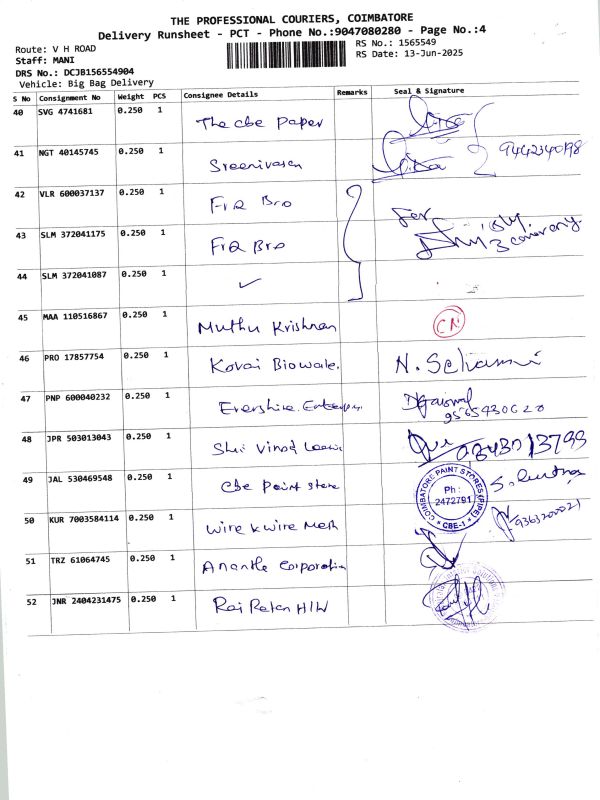 THE PROFESSIONAL COURIERS, COIMBATORE
Delivery Runsheet - PCT - Phone No.:9047080280 - Page No.:4
Route: V H ROAD
RS No.: 1565549
Staff: MANI
RS Date: 13-Jun-2025
DRS No.: DCJB156554904
Vehicle: Big Bag Delivery
S No Consignment No Weight PCS Consignee Details Remarks Seal & Signature
40 SVG 4741681 0.250 1 The cbe Paper
41 NGT 40145745 0.250 1 Sreenivasan
42 VLR 600037137 0.250 1 Bro
43 SLM 372041175 0.250 1 Bro
44 SLM 372041087 0.250 1 ✓
45 MAA 110516867 0.250 1 Muthu Krishnan CN
46 PRO 17857754 0.250 1 Kovai Biowale.
47 PNP 600040232 0.250 1
48 JPR 503013043 0.250 1 Shri Vinod
49 JAL 530469548 0.250 1 Cbe Paint store
COIMBATORE PAINT STORES (PIPE)
Ph :
2472791
CBE-1
50 KUR 7003584114 0.250 1 Wire K Wire Mesh
51 TRZ 61064745 0.250 1 Anantha Corporation
52 JNR 2404231475 0.250 1 Raj Ratan H/W